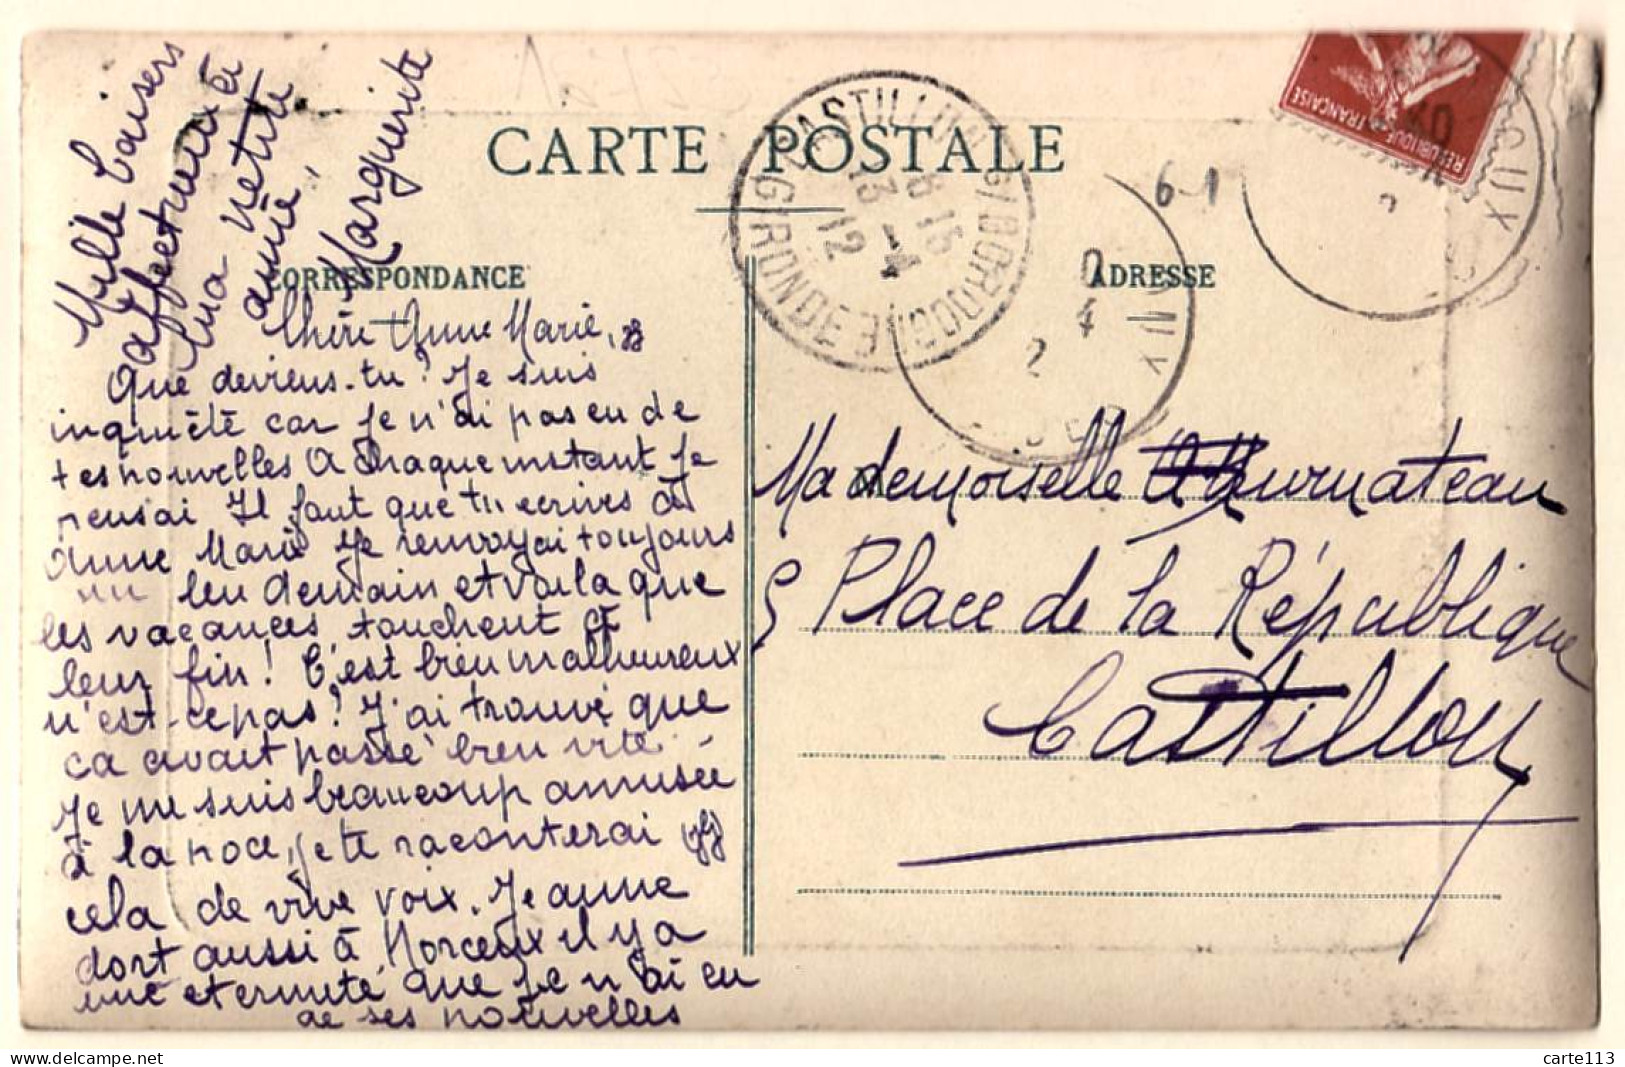 CARTE POSTALE
CORRESPONDANCE
ADRESSE
Chère Anne Marie,
Que deviens-tu? Je suis
inquiète car je n'ai pas eu de
tes nouvelles A chaque instant je
pensai Il faut que tu ecrives à
Anne Marie je renvoyai toujours
au lendemain et voila que
les vacances, touchent à
leur fin! C'est bien malheureux
n'est-ce pas? J'ai trouvé que
ça avait passé bien vite.
Je me suis beaucoup amusée
à la noce, je te raconterai
cela de vive voix. Jeanne
dort aussi à Morceux il y a
une eternité que je n'ai eu
de ses nouvelles
Mille baisers
affectueux de
ma petite
amie,
Marguerite
CASTILLON S/ DORDOGNE
GIRONDE
8 15
13 -4
12
6-1
RÉPUBLIQUE FRANÇAISE
10
Mademoiselle
Place de la République
Castillon
carte113